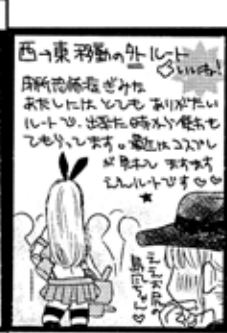 西→東 移動の外ルート
いいね!
閉所恐怖症ぎみな
あたしには とても ありがたい
ルートで、出来た時から使わせ
てもらってます。最近はコスプレ
が見れて ますます
ええルートです♡♡
★
ええお尻
島風ちゃん♡